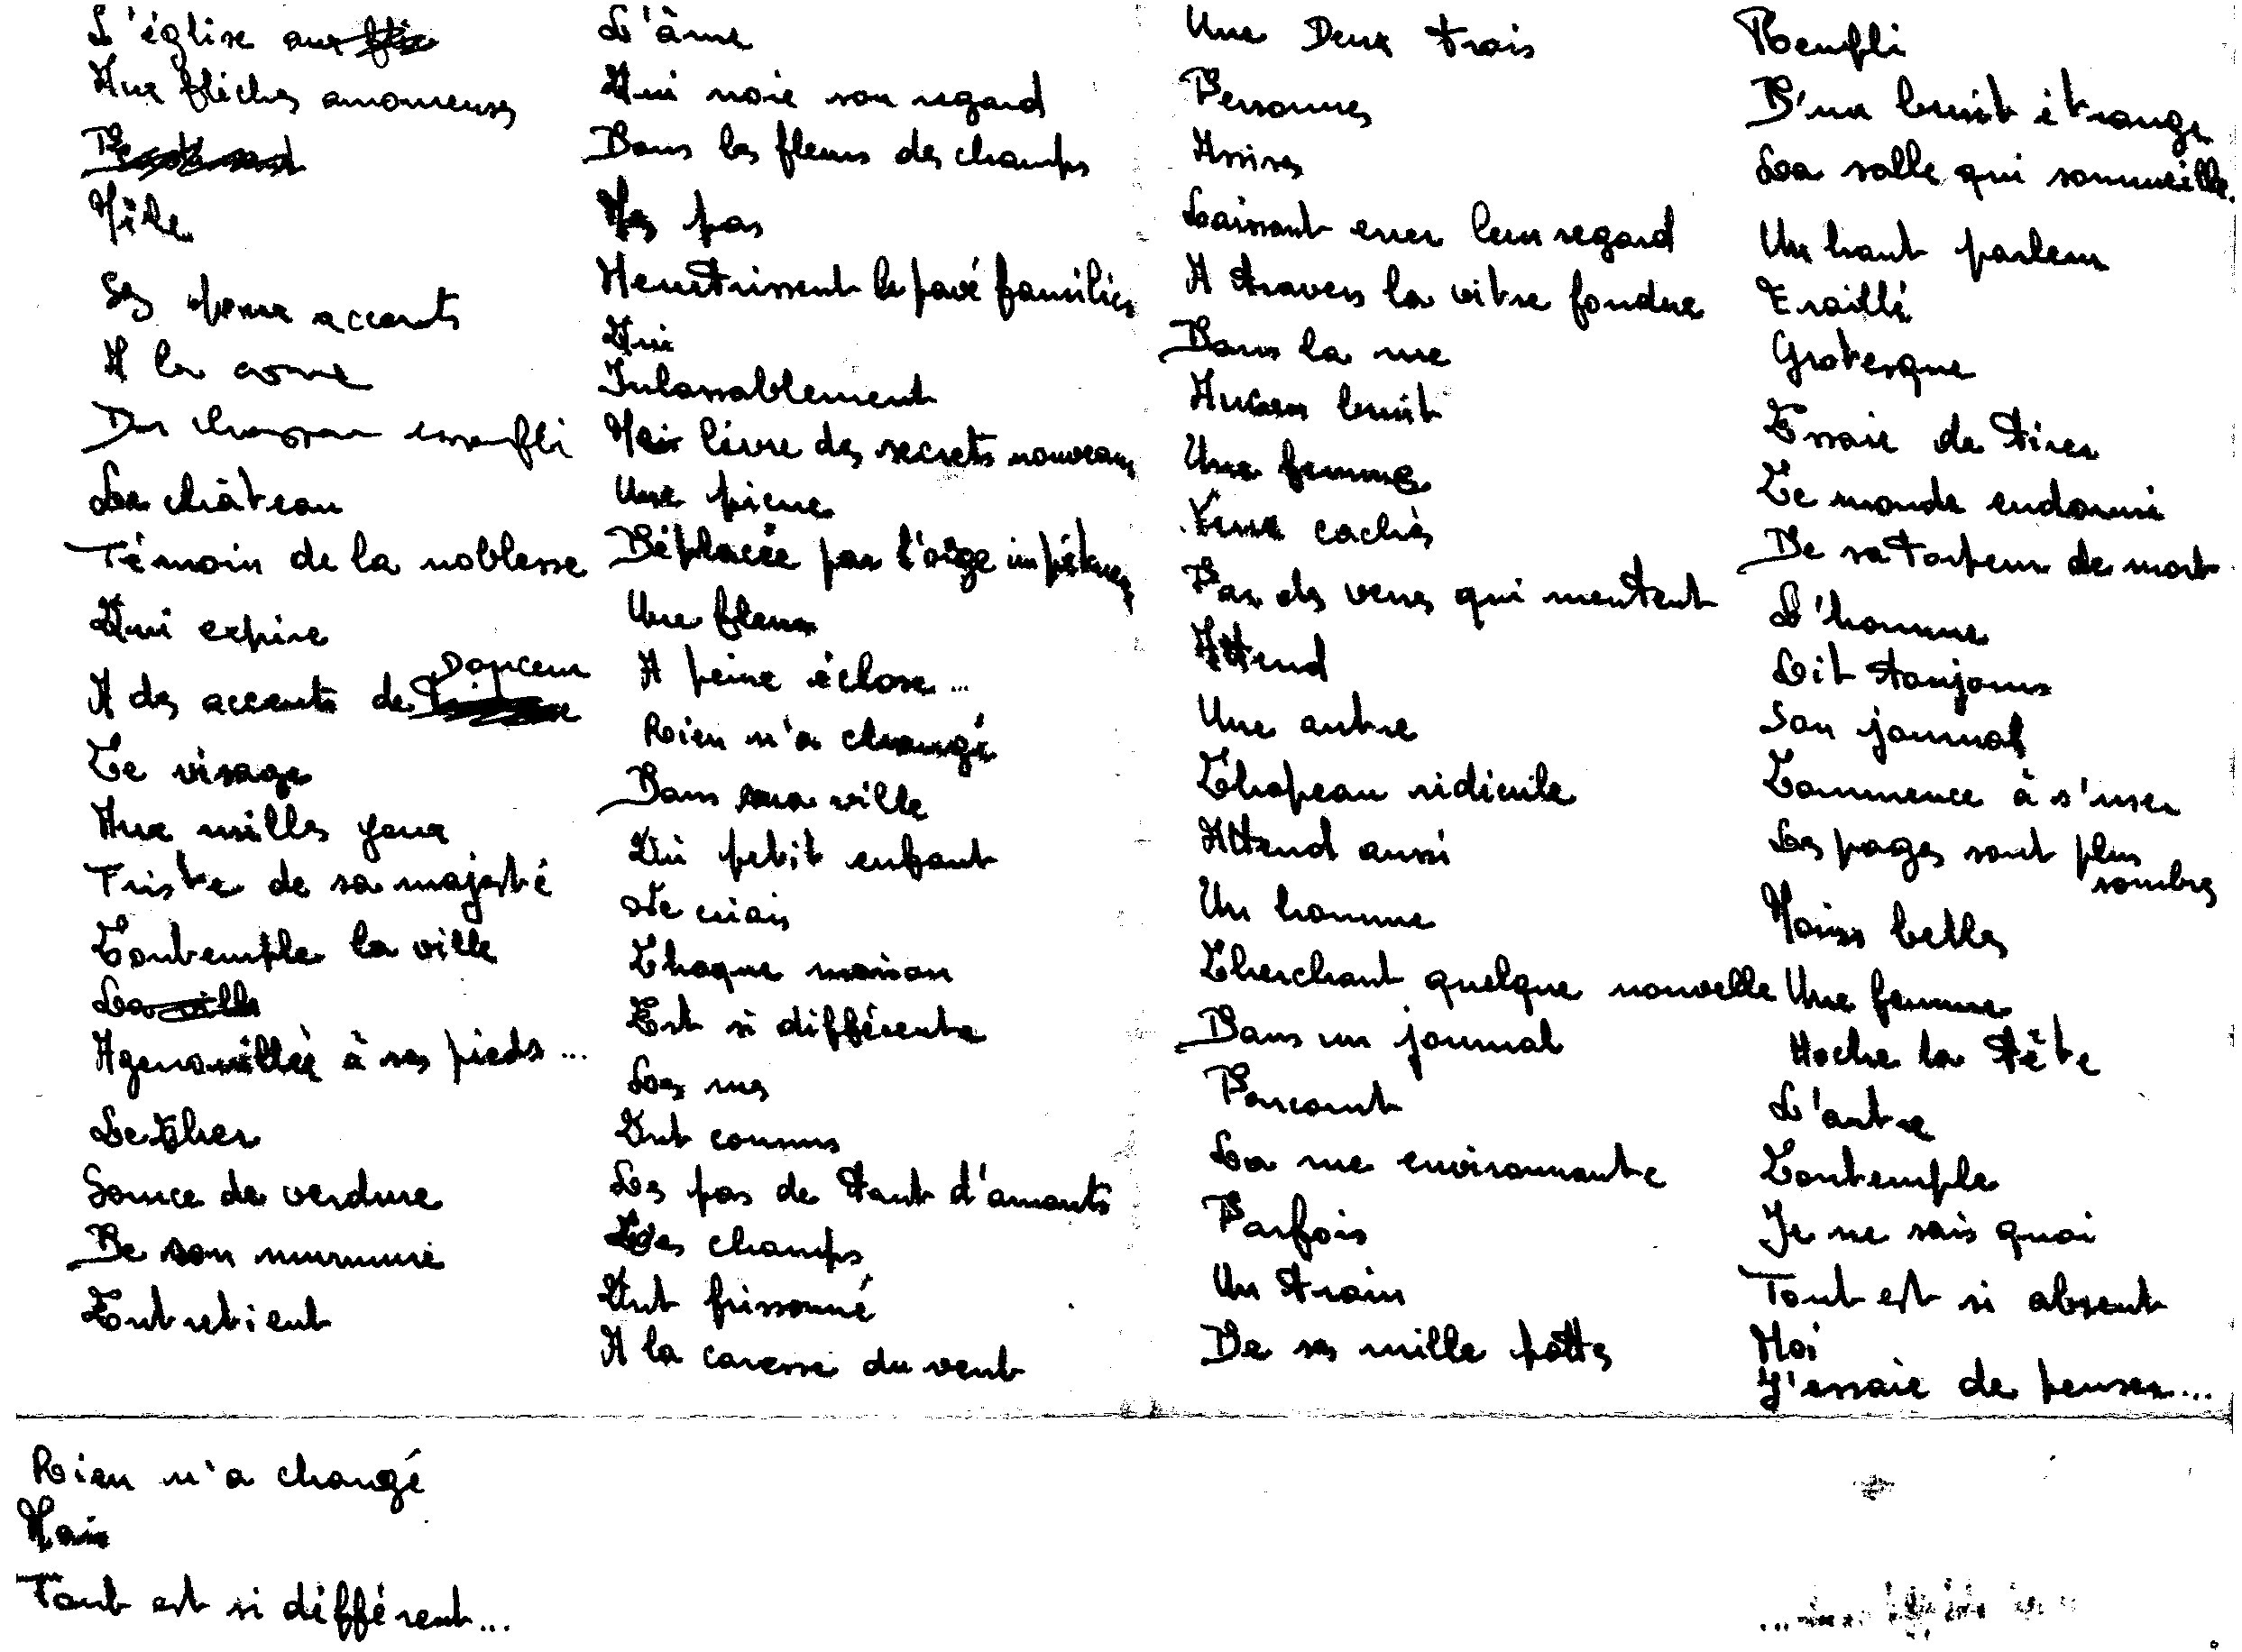 L'église aux
Aux flèches amoureuses
Mêle
Ses accents
A la corne
Du chasseur essoufli
Le château
Témoin de la noblesse
Qui expire
A des accents de Douceur
Le visage
Aux milles yeux
Triste de sa majesté
Contemple la ville
La ville
Agenouillée à ses pieds...
Le Cher
Source de verdure
De son murmure
Entretient
L'âme
Qui noie son regard
Dans les fleurs des champs
Mes pas
Meurtrissent le pavé familier
Qui
Inlassablement
Me livre des secrets nouveaux
Une pierre
Déplacée par l'orage impétueux
Une fleur
A peine éclose...
Rien n'a changé
Dans ma ville
Où petit enfant
Je criais
Chaque maison
Est si différente
Les rues
Ont connus
Les pas de tant d'amants
Les champs
Ont frissonné
A la caresse du vent
Rien n'a changé
Mais
Tout est si différent...
Une Deux trois
Personnes
Assises
Laissant errer leur regard
A travers la vitre fondue
Dans la rue
Aucun bruit
Une femme
Yeux cachés
Par des verres qui mentent
Attend
Une autre
Chapeau ridicule
Attend aussi
Un homme
Cherchant quelque nouvelle
Dans un journal
Parcourt
La rue environnante
Parfois
Un train
De ses mille pattes
Rempli
D'un bruit étrange
La salle qui sommeille.
Un haut parleur
Eraillé
Grotesque
Essaie de tirer
Le monde endormi
De sa torpeur de mort
L'homme
Lit toujours
Son journal
Commence à s'user
Les pages sont plus
sombres
Moins belles
Une femme
Hoche la tête
L'autre
Contemple
Je ne sais quoi
Tout est si absent
Moi
J'essaie de penser...